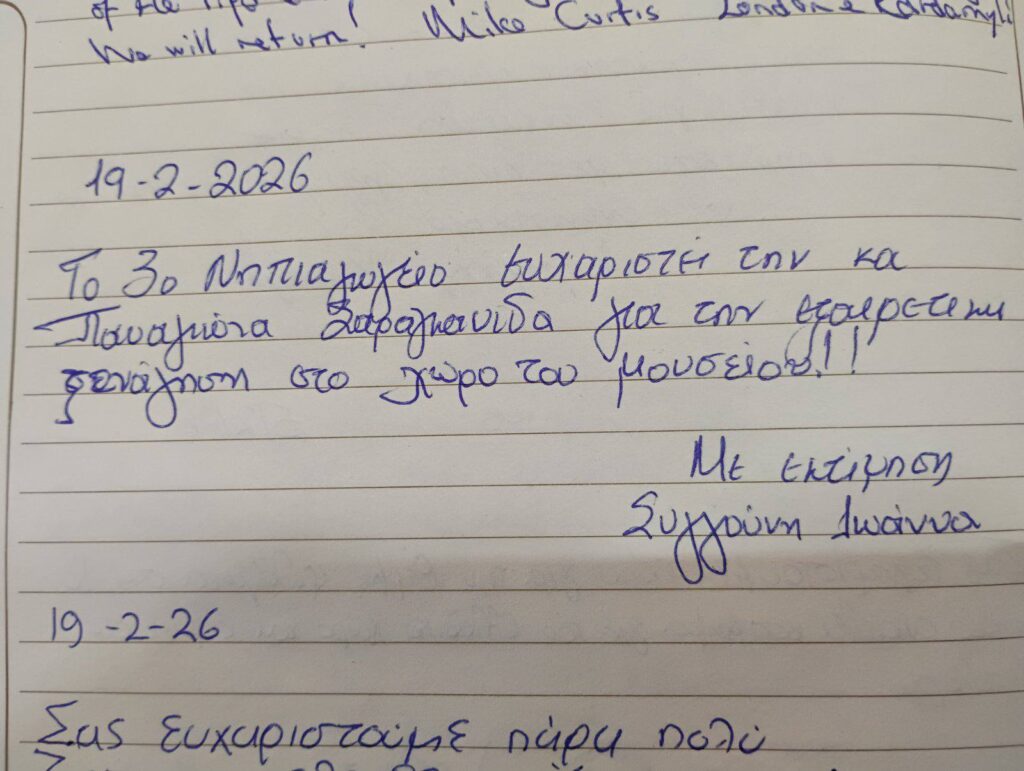 of the
We will return! Mike Curtis London & Kardamyli
19-2-2026
Το 3ο Νηπιαγωγείο ευχαριστεί την κα
Παναγιώτα Σαραγκανίδα για την εξαιρετικη
ξενάγηση στο χώρο του μουσείου!!!
Με εκτίμηση
Συγγούνη Ιωάννα
19-2-26
Σας ευχαριστούμε πάρα πολύ